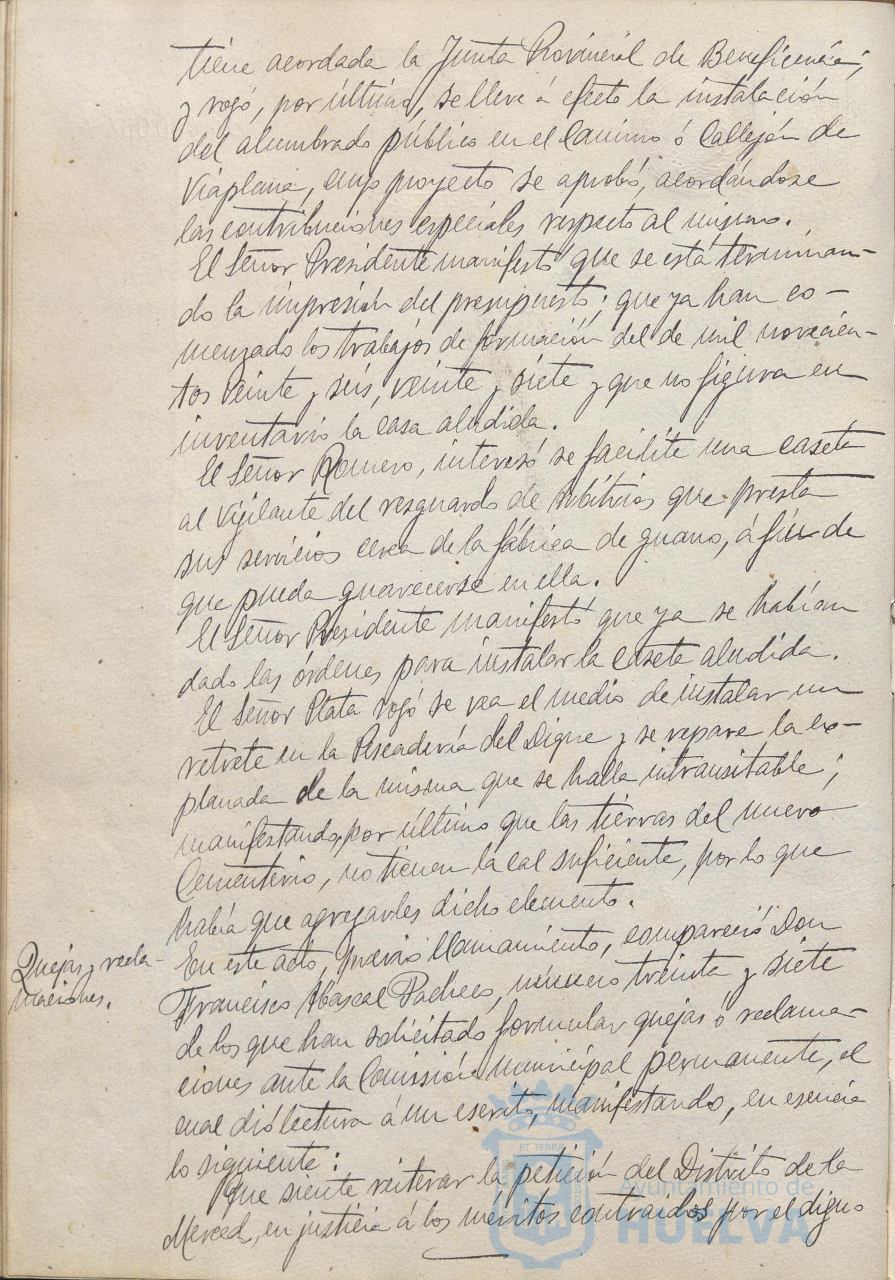 tiene acordada la Junta Provincial de Beneficencia;
y rogó, por último, se lleve á efecto la instalación
del alumbrado público en el Camino ó Callejón de
Viaplana, cuyo proyecto se aprobó, acordándose
las contribuciones especiales respecto al mismo.
El Señor Presidente manifestó que se está terminan-
do la impresión del presupuesto; que ya han co-
menzado los trabajos de formación del de mil novecien-
tos veinte y seis, veinte y siete y que no figura en
inventario la casa aludida.
El Señor Romero, interesó se facilite una caseta
al Vigilante del resguardo de arbitrios que presta
sus servicios cerca de la fábrica de guano, á fin de
que pueda guarecerse en ella.
El Señor Presidente manifestó que ya se habían
dado las órdenes para instalar la caseta aludida.
El Señor Plata rogó se vea el medio de instalar un
retrete en la Pescadería del Dique y se repare la ex-
planada de la misma que se halla intransitable;
manifestando, por último que las tierras del nuevo
Cementerio, no tienen la cal suficiente, por lo que
había que agregarles dicho elemento.
Quejas y recla-
maciones.
En este acto, previo llamamiento, compareció Don
Francisco Abascal Pacheco, número treinta y siete
de los que han solicitado formular quejas ó reclama-
ciones ante la Comisión municipal permanente, el
cual dió lectura á un escrito, manifestando, en esencia
lo siguiente:
Que siente reiterar la petición del Distrito de la
Merced, en justicia á los méritos contraidos por el digno
ET TERRA
Ayuntamiento de
HUELVA